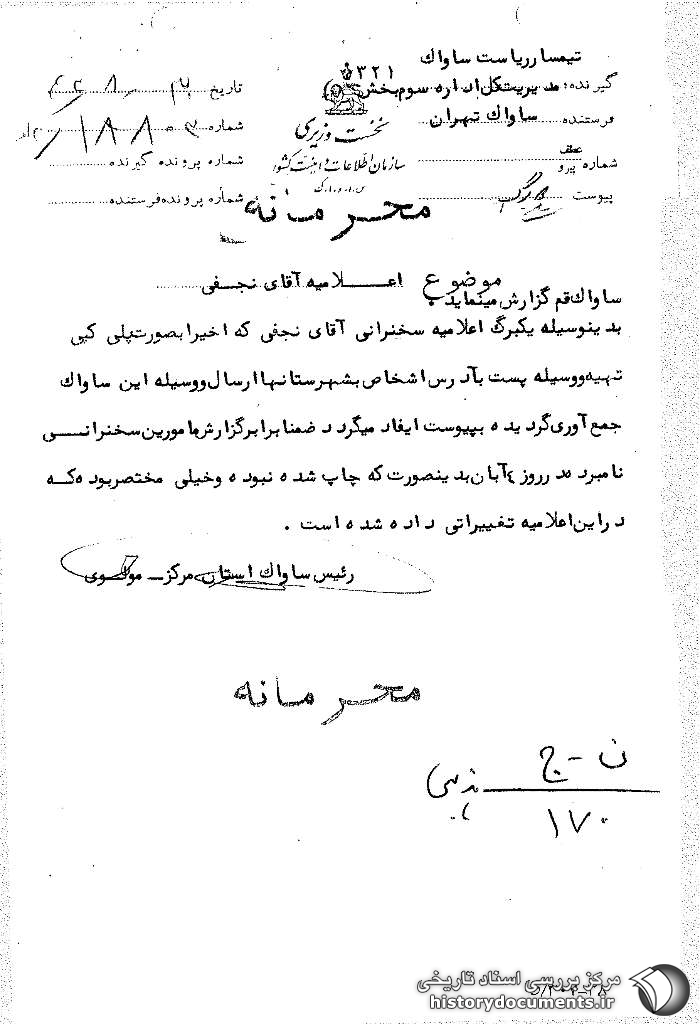 تیمسار ریاست ساواک
گیرنده: مدیریت کل اداره سوم بخش ۳۲۱
فرستنده ساواک تهران
شماره عطف پیرو
پیوست یک برگ
نخست وزیری
سازمان اطلاعات و امنیت کشور
س.ا.و.ا.ک
تاریخ
شماره
شماره پرونده گیرنده
شماره پرونده فرستنده
محرمانه
موضوع اعلامیه آقای نجفی
ساواک قم گزارش مینماید
بدینوسیله یکبرگ اعلامیه سخنرانی آقای نجفی که اخیرا بصورت پلی کپی
تهیه و وسیله پست بآدرس اشخاص بشهرستانها ارسال و وسیله این ساواک
جمع آوری گردیده بپیوست ایفاد میگردد ضمنا برابر گزارش مامورین سخنرانی
نامبرده در روز ۴ آبان بدینصورت که چاپ شده نبوده و خیلی مختصر بوده که
در این اعلامیه تغییراتی داده شده است .
رئیس ساواک استان مرکز ـ مولوی
محرمانه
ن - ج
۱۷۰
مرکز بررسی اسناد تاریخی
historydocuments.ir